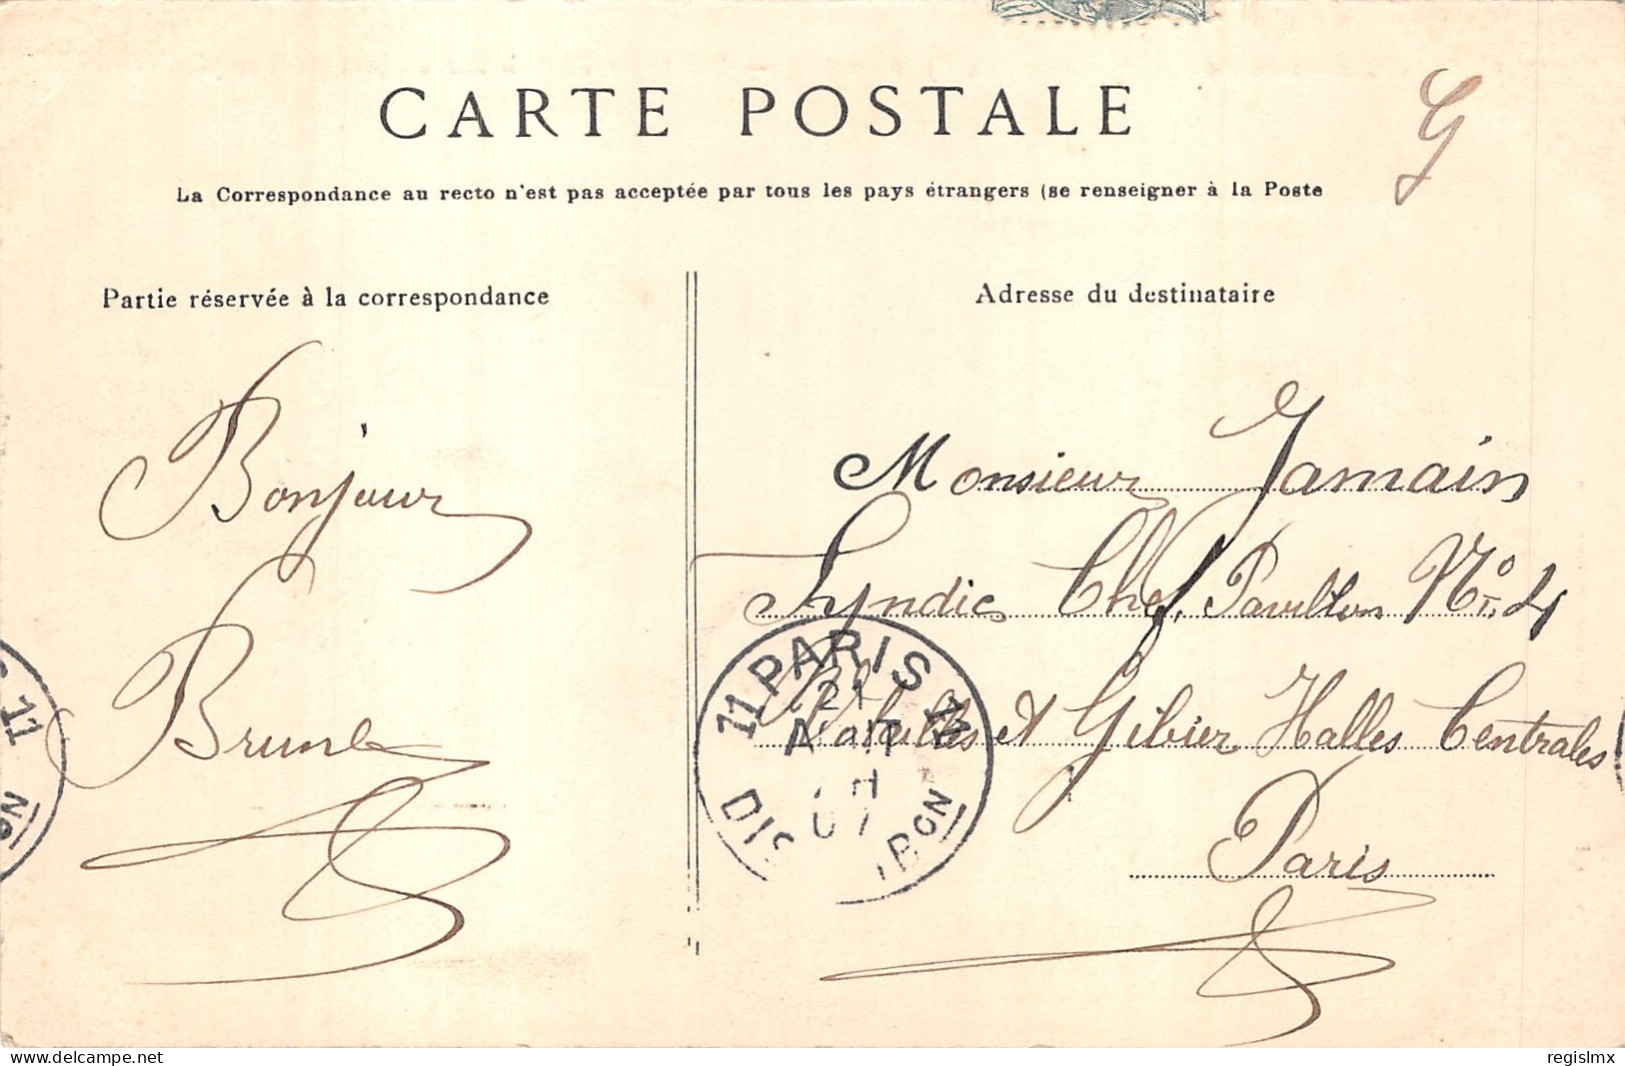 CARTE POSTALE
G
La Correspondance au recto n'est pas acceptée par tous les pays étrangers (se renseigner à la Poste
Partie réservée à la correspondance
Adresse du destinataire
Bonjour
Brunel
Monsieur Jamain
Syndic Chef, Pavillon No. 4
Volailles et Gibier Halles Centrales
Paris
11 PARIS 11
21
07
DIS IBON
11
delcampe.net
regislmx